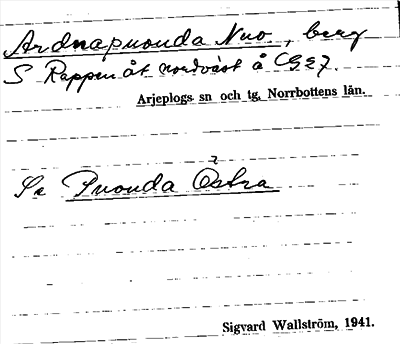 Ardnapuouda Nuo, berg
S Rappen åt nordväst å CGEJ.
Arjeplogs sn och tg, Norrbottens län.
Se Puouda Östra
Sigvard Wallström, 1941.